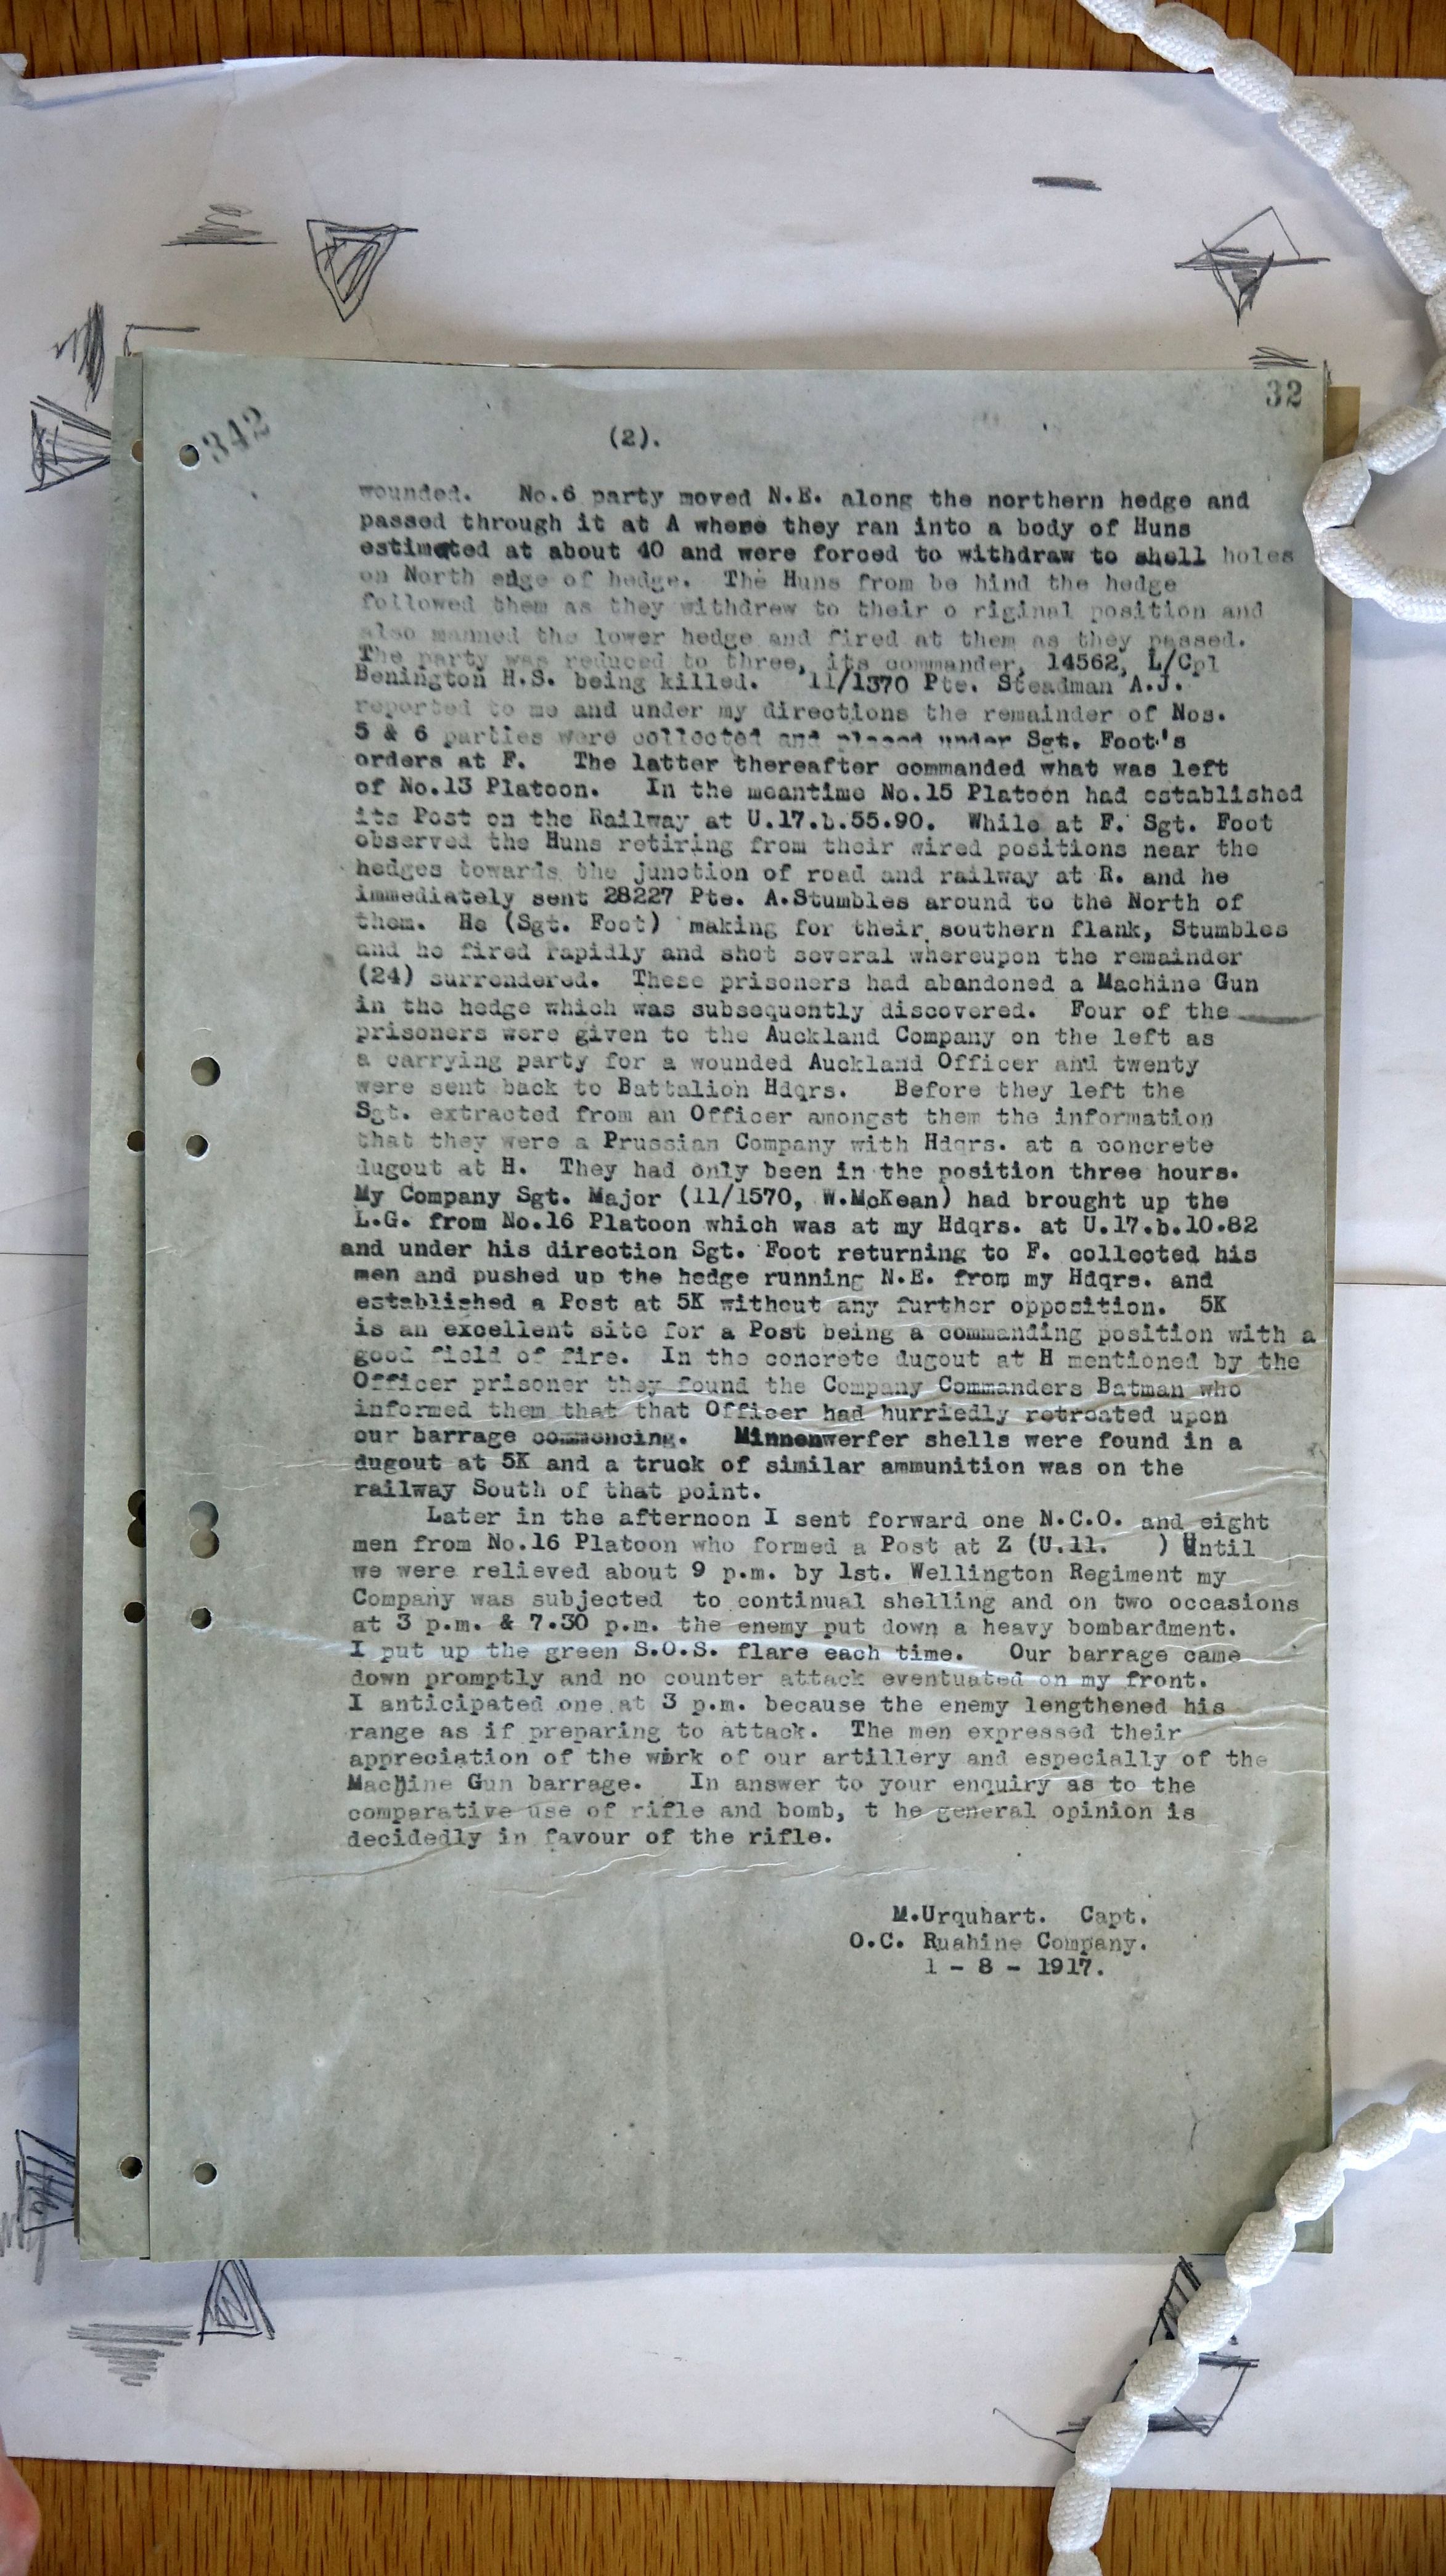 32
342
(2).
wounded. No.6 party moved N.E. along the northern hedge and
passed through it at A where they ran into a body of Huns
estimated at about 40 and were forced to withdraw to shell holes
on North edge of hedge. The Huns from be hind the hedge
followed them as they withdrew to their o riginal position and
also manned the lower hedge and fired at them as they passed.
The party was reduced to three, its commander, 14562, L/Cpl
Benington H.S. being killed. 11/1370 Pte. Steadman A.J.
reported to me and under my directions the remainder of Nos.
5 & 6 parties were collected and placed under Sgt. Foot's
orders at F. The latter thereafter commanded what was left
of No.13 Platoon. In the meantime No.15 Platoon had established
its Post on the Railway at U.17.b.55.90. While at F. Sgt. Foot
observed the Huns retiring from their wired positions near the
hedges towards the junction of road and railway at R. and he
immediately sent 28227 Pte. A.Stumbles around to the North of
them. He (Sgt. Foot) making for their southern flank, Stumbles
and he fired rapidly and shot several whereupon the remainder
(24) surrendered. These prisoners had abandoned a Machine Gun
in the hedge which was subsequently discovered. Four of the
prisoners were given to the Auckland Company on the left as
a carrying party for a wounded Auckland Officer and twenty
were sent back to Battalion Hdqrs. Before they left the
Sgt. extracted from an Officer amongst them the information
that they were a Prussian Company with Hdqrs. at a concrete
dugout at H. They had only been in the position three hours.
My Company Sgt. Major (11/1570, W.McKean) had brought up the
L.G. from No.16 Platoon which was at my Hdqrs. at U.17.b.10.82
and under his direction Sgt. Foot returning to F. collected his
men and pushed up the hedge running N.E. from my Hdqrs. and
established a Post at 5K without any further opposition. 5K
is an excellent site for a Post being a commanding position with a
good field of fire. In the concrete dugout at H mentioned by the
Officer prisoner they found the Company Commanders Batman who
informed them that that Officer had hurriedly retreated upon
our barrage commencing. Minnenwerfer shells were found in a
dugout at 5K and a truck of similar ammunition was on the
railway South of that point.
Later in the afternoon I sent forward one N.C.O. and eight
men from No.16 Platoon who formed a Post at Z (U.11. ) Until
we were relieved about 9 p.m. by 1st. Wellington Regiment my
Company was subjected to continual shelling and on two occasions
at 3 p.m. & 7.30 p.m. the enemy put down a heavy bombardment.
I put up the green S.O.S. flare each time. Our barrage came
down promptly and no counter attack eventuated on my front.
I anticipated one at 3 p.m. because the enemy lengthened his
range as if preparing to attack. The men expressed their
appreciation of the work of our artillery and especially of the
Machine Gun barrage. In answer to your enquiry as to the
comparative use of rifle and bomb, t he general opinion is
decidedly in favour of the rifle.
M.Urquhart. Capt.
O.C. Ruahine Company.
1 - 8 - 1917.